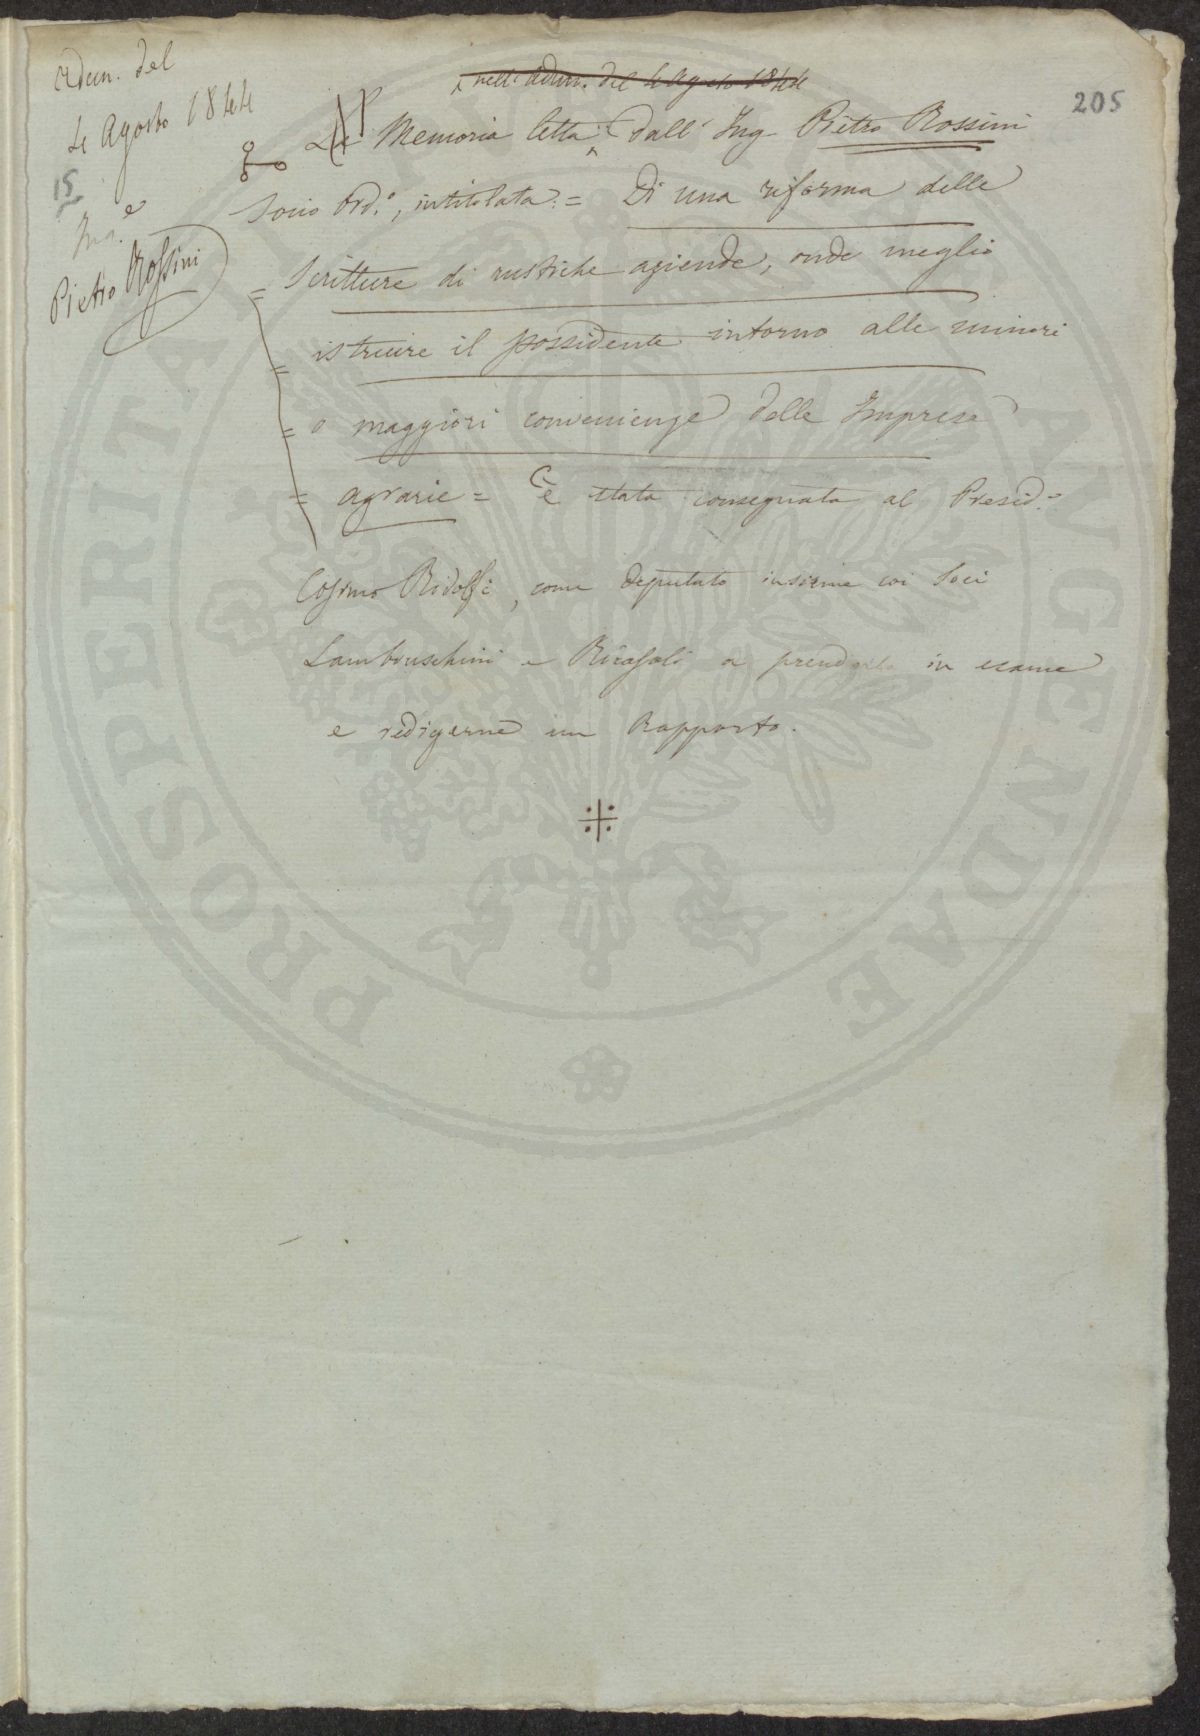 Adun. del
4 Agosto 1844
15
Ing.e
Pietro Rossini
205
nell' Adun. del 4 Agosto 1844
La Memoria letta dall' Ing. Pietro Rossini
Socio Ord.o, intitolata = Di una riforma delle
= Scritture di rustiche aziende, onde meglio
= istruire il possidente intorno alle minori
= o maggiori convenienze delle Imprese
= agrarie = è stata consegnata al Presid.e
Cosimo Ridolfi, come deputato insieme coi Soci
Lambruschini e Ricasoli a prenderla in esame
e redigerne un Rapporto.
PROSPERITATI PUBLICAE AUGENDAE